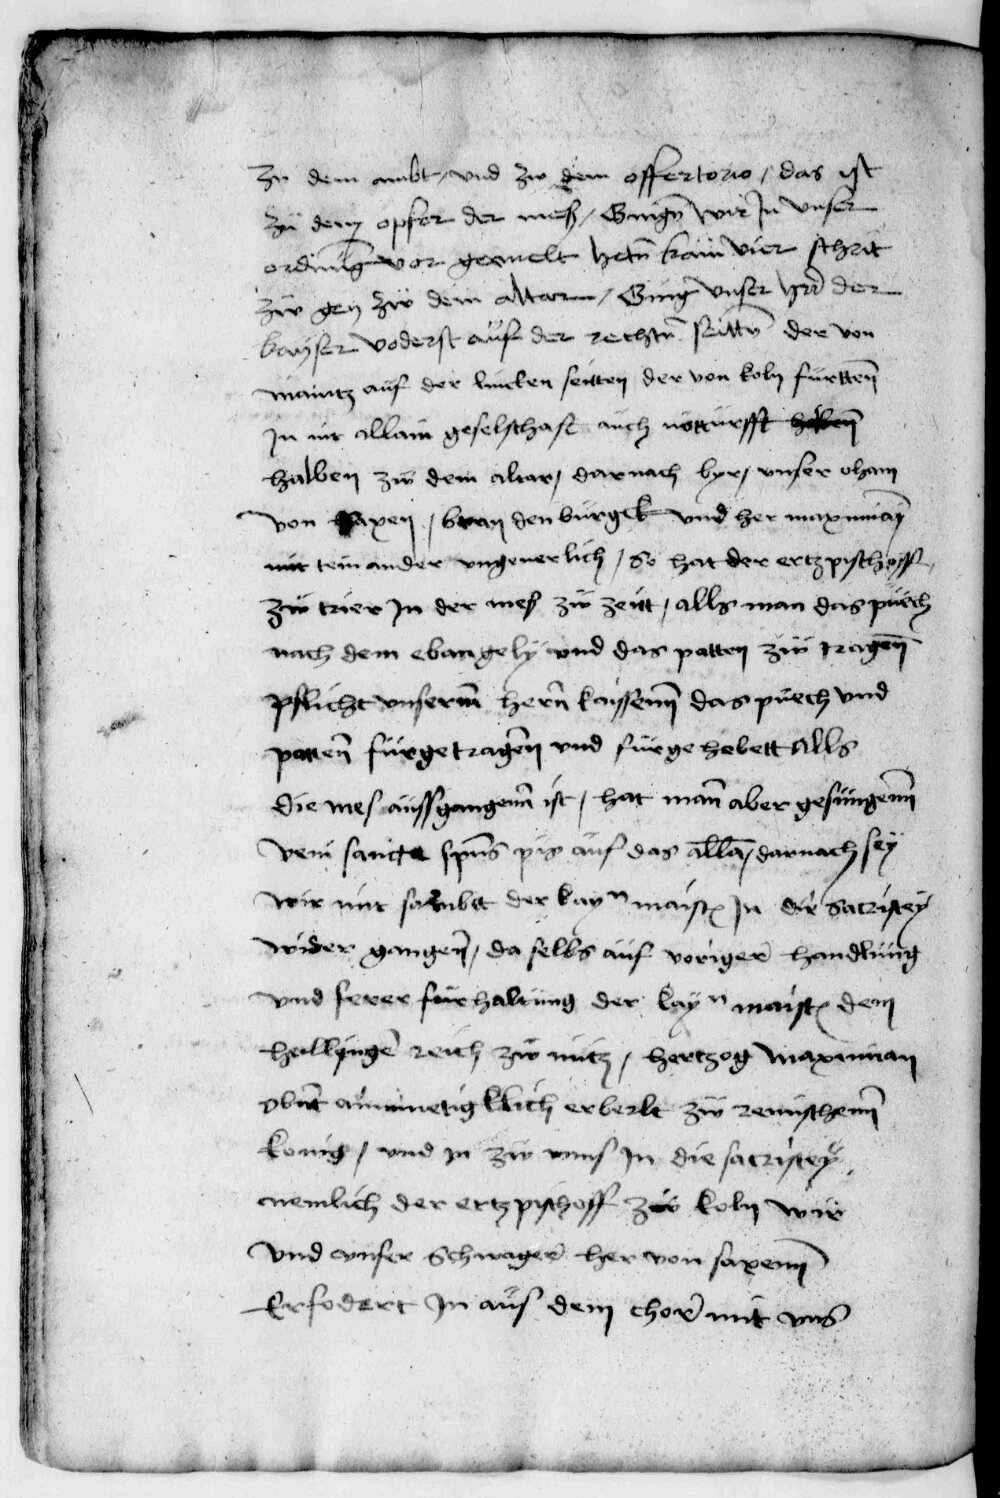 zu dem ambt / und zw dem offertorio / das ist
zu dem opfer der mess / Gingn wir In unser
ordnung vor gemelt hetn kain vier schrit
zw gen zw dem altarn / Ging unser her der
kayser voderst auf der rechtn seittn der von
maintz auf der lincken seitten der von koln furttenn
In mit allain geselschaft auch notturfft
halben zw dem altar / darnach wyr / unser oham
von saxen / brandenburgk und her maximian
mit ein ander ungeuerlich / So hat der ertzpischoff
zw trier In der mess zw zeitt / alls man das puech
nach dem ebangely und das patten zw tragenn
pflicht unserm hernn kaissernn das puech und
pattenn furgetragenn und furgehebett Alls
die mes aussgangenn ist / hat man aber gesungenn
veni sancte spus pis auf das alla / darnach sey
wir mit sambt der kayn maist In die sacristey
wider gangenn / da selbs auf voriger handlung
und ferer furhaltung der kayn maist dem
heilligenn reich zw nutz / hertzog maximian
obntt ainmuetigklich erbelt zw remischenn
konig / und in zw unns In die sacristey
nemlich der ertzpischoff zw koln wir
und unser Schwager her von saxenn
Erfodert In aus dem chor mit uns